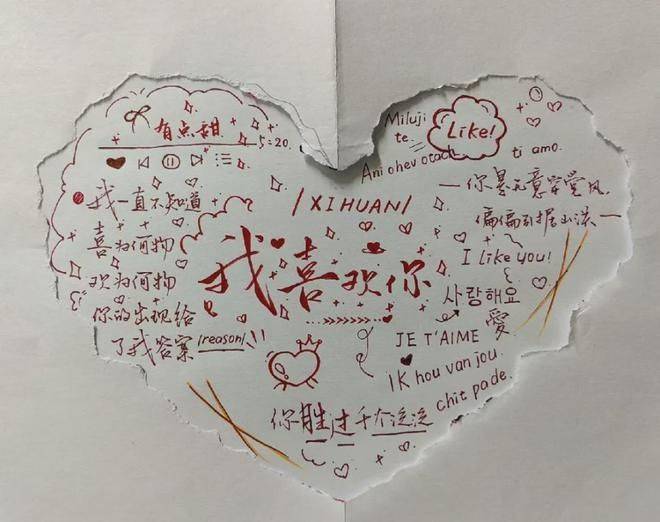 有点甜
5:20.
我一直不知道
喜为何物
欢为何物
你的出现给
了我答案 /reason/
/XIHUAN/
我喜欢你
Miluji
te.
Like!
Ani ohev otach
ti amo.
一你累无意穿堂风
偏偏孤据山洪一
I like you!
사랑해요
愛
JE T'AIME
IK hou van jou.
chit pa de.
你胜过千个泛泛